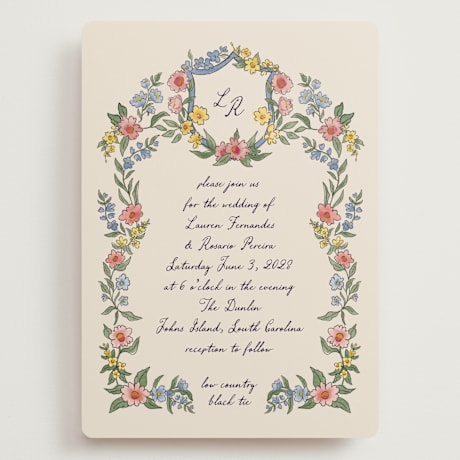 L R
please join us
for the wedding of
Lauren Fernandes
& Rosario Pereira
Saturday June 3, 2028
at 6 o'clock in the evening
The Dunlin
Johns Island, South Carolina
reception to follow
low country
black tie